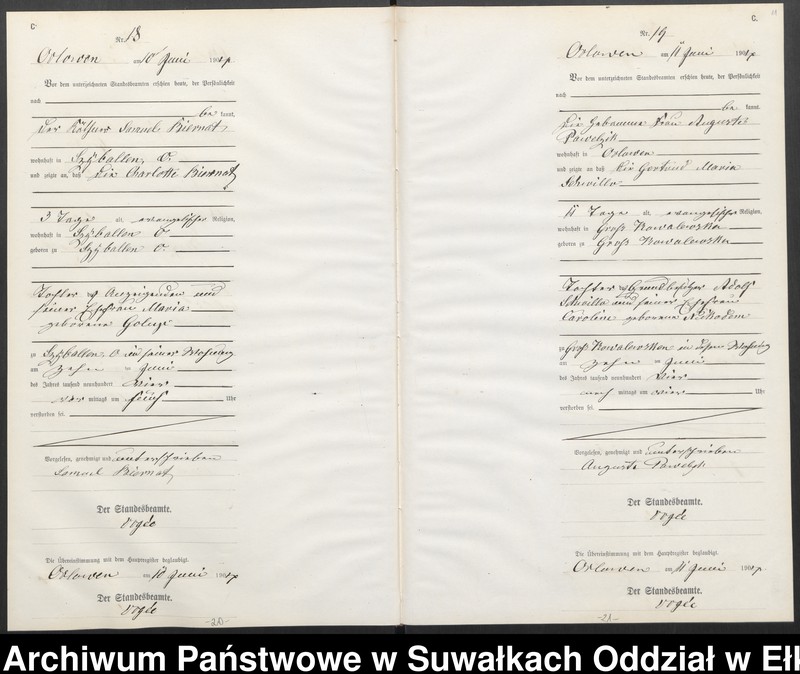 C.
Nr. 18
Orlowen am 10 Juni 1904
Vor dem unterzeichneten Standesbeamten erschien heute, der Persönlichkeit
nach
be kannt,
Der Käthner Samuel Biernat
wohnhaft in Szyballen, O.
und zeigte an, daß die Charlotte Biernat
3 Tage alt, evangelischer Religion,
wohnhaft in Szyballen O.
geboren zu Szyballen O.
Tochter des Anzeigenden und
seiner Ehefrau Maria
geborene
zu Szyballen, O. in seiner Wohnung
am zehn ten Juni
des Jahres tausend neunhundert vier
vor mittags um fünf Uhr
verstorben sei.
Vorgelesen, genehmigt und unterschrieben
Samuel Biernat
Der Standesbeamte.
Vogée
Die Übereinstimmung mit dem Hauptregister beglaubigt.
Orlowen am 10 Juni 1904
Der Standesbeamte.
Vogée
-20-
C.
Nr. 19
Orlowen am 11 Juni 1904
Vor dem unterzeichneten Standesbeamten erschien heute, der Persönlichkeit
nach
be kannt,
die Hebamme Frau Auguste
Pawelzik
wohnhaft in Orlowen
und zeigte an, daß die Gertrud Maria
Schwillo
11 Tage alt, evangelischer Religion,
wohnhaft in Groß Kowalewsken
geboren zu Groß Kowalewsken
Tochter des Grundbesitzer Adolf
Schwillo und seiner Ehefrau
Caroline geborene Nikodem
zu Groß Kowalewsken in dessen Wohnung
am zehn ten Juni
des Jahres tausend neunhundert vier
nach mittags um vier Uhr
verstorben sei.
Vorgelesen, genehmigt und unterschrieben
Auguste Pawelzik
Der Standesbeamte.
Vogée
Die Übereinstimmung mit dem Hauptregister beglaubigt.
Orlowen am 11 Juni 1904
Der Standesbeamte.
Vogée
-21-
Archiwum Państwowe w Suwałkach Oddział w Ełk